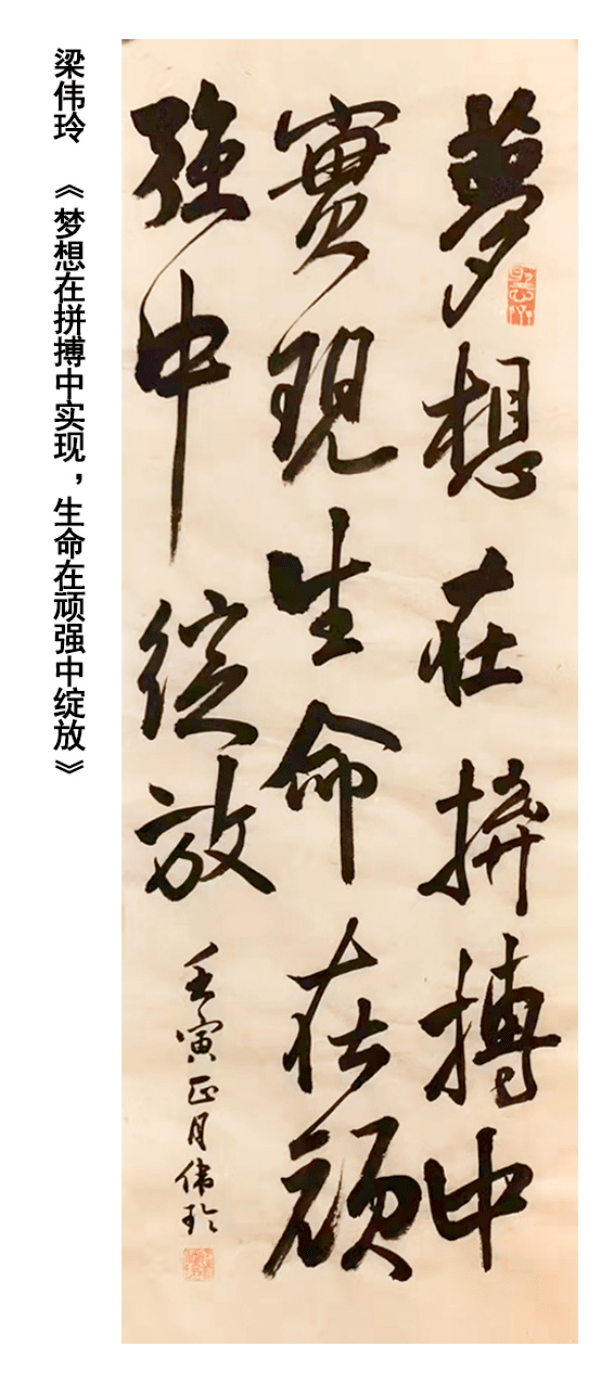 梁伟玲 《梦想在拼搏中实现，生命在顽强中绽放》
夢想在拚搏中
實現生命在頑
强中綻放
壬寅正月伟玲